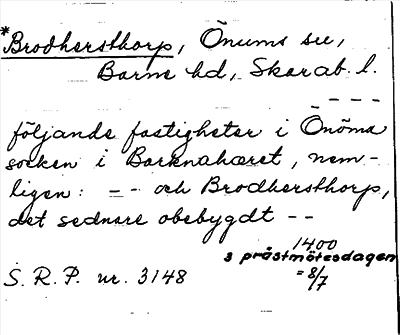 *Brodhersthorp, Önums sn,
Barne hd, Skarab. l.
– – – –
följande fastigheter i Önöma
socken i Barknahæret, nem-
ligen: – – och Brodhersthorp,
det sednare obebygdt – –
1400
s prästmötesdagen
S. R. P. nr. 3148 = 8/7